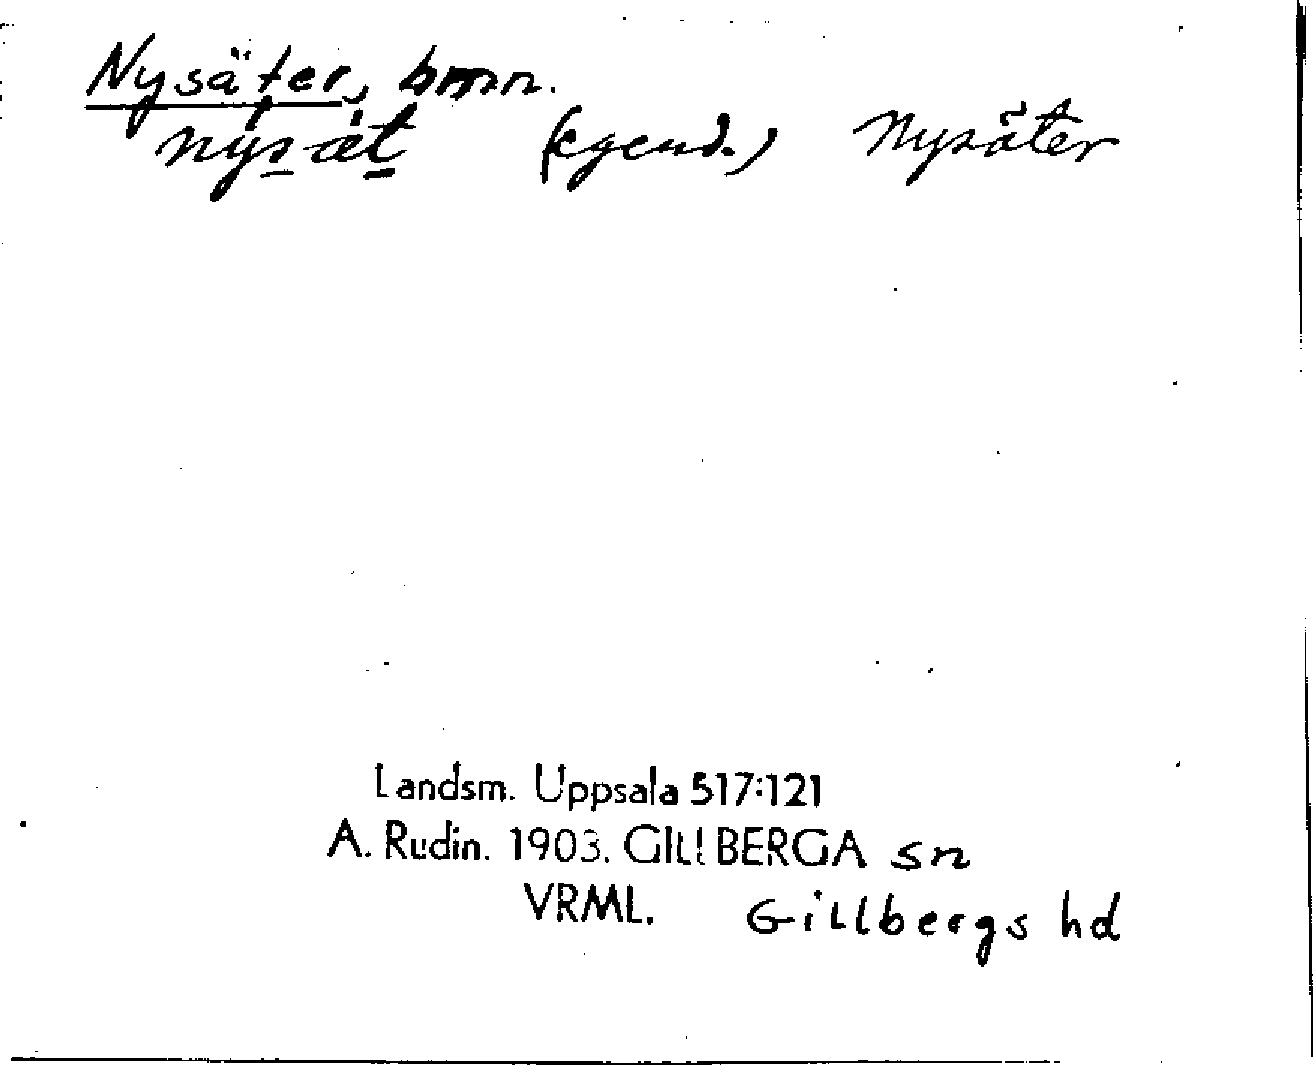 Nysäter, bmn.
nysät (egend.) Nysäter
Landsm. Uppsala 517:121
A. Rudin. 1903. GILLBERGA sn
VRML. Gillbergs hd